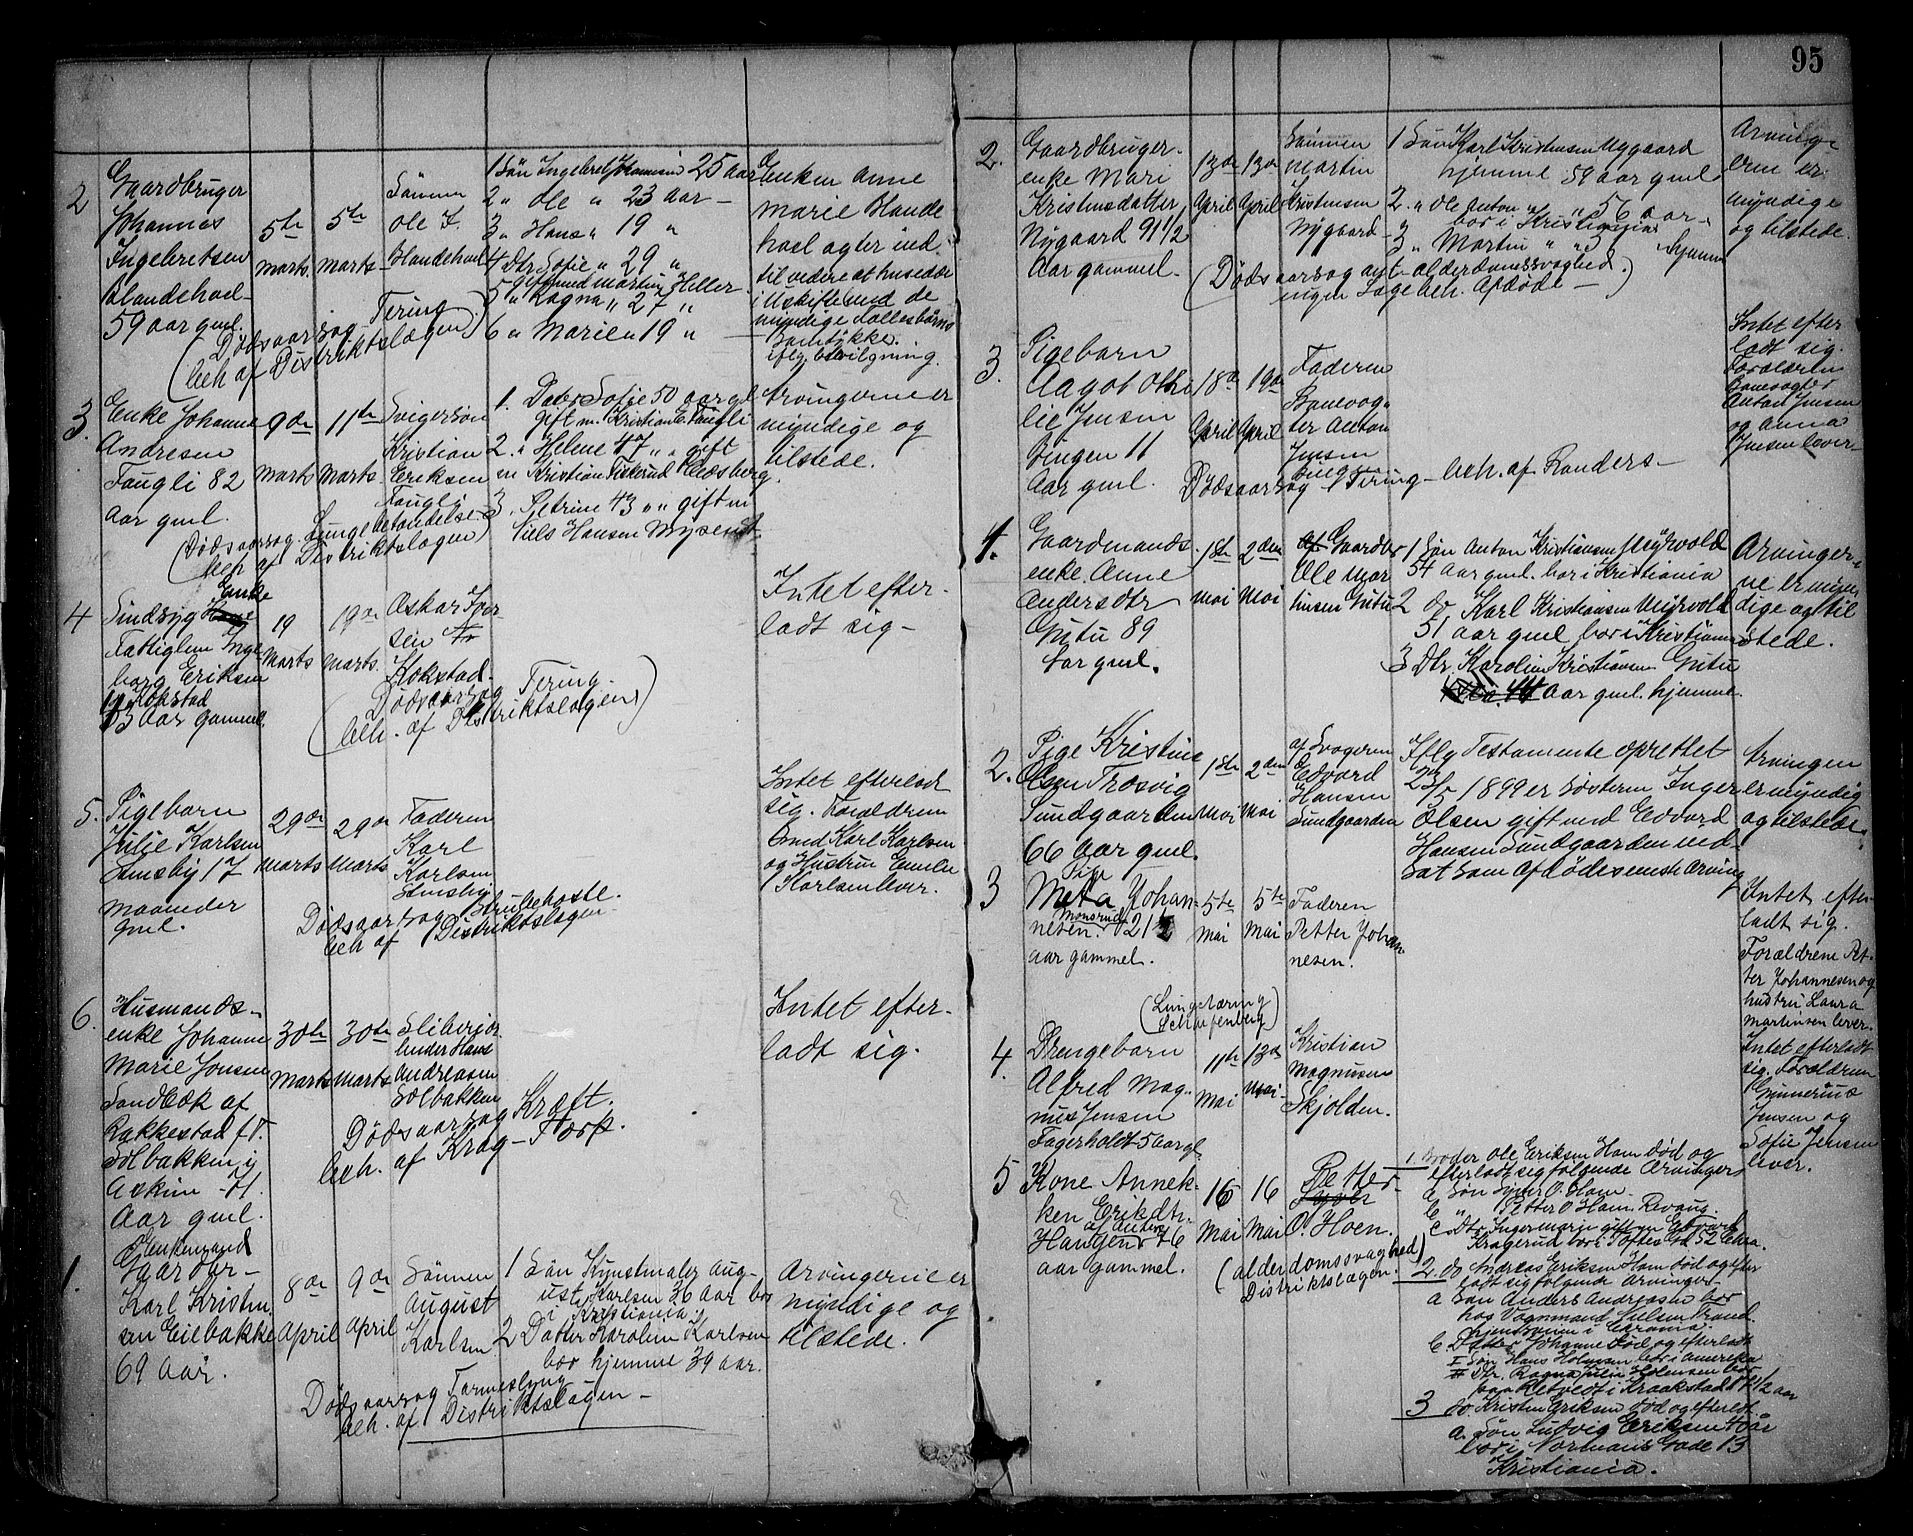 2
Gaardbruger
Johannes
Ingebretsen
Handehoel
59 aar gml.
5te
marts
5te
marts
Sønnen
Ole J.
Handehoel
1 Søn Ingebret Johannesen 25 aar
2 " Ole " 23 aar —
3 " Hans " 19 "
4 Dtr Sofie " 29 "
Gift med Martin Heller
5 " Ragna " 27 "
6 " Marie " 19 "
Enken Anne
Marie Hande
hoel agter ind
til videre at hensidde
i Uskifte med de
myndige Fællesbørns
Samtykke.
iflg bevilgning.
(Dødsaarsag Tering
beh af Distriktslægen)
3.
Enke Johanne
Andresen
Faugli 82
aar gml.
9de
marts
11te
marts
Svigersøn
Kristian
Eriksen
Faugli
1. Datr Sofie 50 aar gl
gift m. Kristian E. Faugli
2. " Helene 47 " " gift
m Kristian Fiskerud Eidsberg.
3. Petrine 43 " " gift m
Niels Hansen Mysen
Arvingerne er
myndige og
tilstede.
(Dødsaarsag Lunge betændelse
beh af Distriktslægen)
4
Enke
Sindsyg
Fattiglem Inge
borg Eriksen
Kokstad
aar gammel.
19
Marts
19de
marts
Oskar Iver
sen
Kokstad.
Intet efter-
ladt sig —
(Dødsaarsag Tering.
beh. af Distriktslægen)
5.
Pigebarn
Julie Karlsen
17
maaneder
gml.
29de
marts
29de
Marts
Faderen
Karl
Karlsen
Intet efterlod
sig. Forældrene
Karl Karlsen
og Hustru
Karlsen lever.
Dødsaarsag Strubehoste.
beh af Distriktslægen
6.
Husmands-
enke Johanne
Marie Jonsen
Sandbæk af
Rakkestad f.T.
Solbakken i
Askim - 71
Aar gml.
30te
Marts
30te
Marts
Sliberiar
beider Hans
Andreasen
Solbakken
Intet efter-
ladt sig.
Dødsaarsag Kræft.
beh. af Krag - Torp.
1.
Enkemand
Gaardbr-
Karl Kristen
sen Eilbakke
69 aar.
8de
April
9de
April
Sønnen
August
Karlsen
1 Søn Kunstmaler Aug-
ust Karlsen 36 aar bor
i Kristiania
2 Datter Karoline Karlsen
bor hjemme 39 aar.
Arvingerne er
myndige og
tilstede.
Dødsaarsag Tarmeslyng
beh. af Distriktslægen —
95
2.
Gaardbruger-
enke Mari
Kristensdatter
Nygaard 91 1/2
Aar gammel.
13de
April
13de
April
Sønnen
Martin
Kristensen
Nygaard
1 Søn Karl Kristensen Nygaard
hjemme 59 aar gml
2. " Ole Anton " " 56 aar —
bor i Kristiania
3 " Martin " " hjemme
Arvinge
rne er
myndige
og tilstede.
(Dødsaarsag ant. alderdomssvaghed.
ingen Læge beh. Afdøde —)
3.
Pigebarn
Aagot Othi
lie Jensen
Bingen 11
Aar gml.
18de
April
19de
April
Faderen
Banevog-
ter Anton
Jensen
Bingen
Intet efter
ladt sig.
Forældrene
Banevogter
Anton Jensen
og Anna
Jensen lever —
Dødsaarsag Tering — beh. af Randers —
1.
Gaardmands
enke Anne
Andersdtr
Gutu 89
Aar gml.
1ste
mai
2den
Mai
af Gaardbr
Ole Mar
tinsen Gutu
1 Søn Anton Kristiansen Myrvold
54 aar gml. bor i Kristiania
2 do Karl Kristiansen Myrvold
51 aar gml bor i Kristiania
3 Dtr. Karolin Kristiansen Gutu
44 Aar gml. hjemme.
Arvinger-
ne er myn
dige og til
stede.
2.
Pige Kristine
Olsen Trosvig
Sundgaarden
66 aar gml.
1ste
Mai
2den
Mai
af Svogeren
Edvard
Hansen
Sundgaarden
Iflg Testamente oprettet
23/5 1899 er Søsteren Inger
Olsen gift med Edvard
Hansen Sundgaarden ind-
sat som Afdødes eneste Arving
Arvingen
er myndig
og tilstede.
3
Pige
Meta Johan-
nesen. Monsrud 21 1/2
aar gammel.
5te
mai
5te
Mai
Faderen
Petter Johan
nesen.
Intet efter-
ladt sig.
Forældrene Pet-
ter Johannesen og
hustru Laura
Martinsen lever.
(Lungetæring
Scharfenberg)
4.
Drengebarn
Alfred Mag-
nus Jensen
Fagerholdt 5 aar gl
11te
Mai
13de
Mai
Kristian
Magnusen
Skjolden.
Intet efterladt
sig. Forældrene
Gunnerius
Jensen og
Sofie Jensen
lever.
5
Kone Annek-
ken Eriksdtr.
Haugen 76
aar gammel.
16
Mai
16
Mai
Petter
O. Hoen.
(alderdomssvaghed)
Distriktslægen.
1. Broder Ole Eriksen Hom død og
efterladt sig følgende Arvinger
a Søn Syver O. Hom.
b " Petter O Hom. Revaug.
c Dtr. Ingermarie gift m Edvard
Kragerud bor i Toftes Gd 52 Chra.
2. do Andreas Eriksen Hom død og efter
ladt sig følgende Arvinger
a Søn Anders Andreasen bor
hos Vognmand Nielsen Trond-
hjemsveien i Chrania.
b Datter Johanne død og efterladt
I Søn Hans Holmsen bor i Amerika
II Dtr. Ragna Julie Holmsen bor
paa Retvedt i Kraakstad 17 1/2 aar
3 do. Kristen Eriksen død og efterladt
a. Søn Ludvig Eriksen 40 aar
bor i Normans Gade 13
Kristiania.